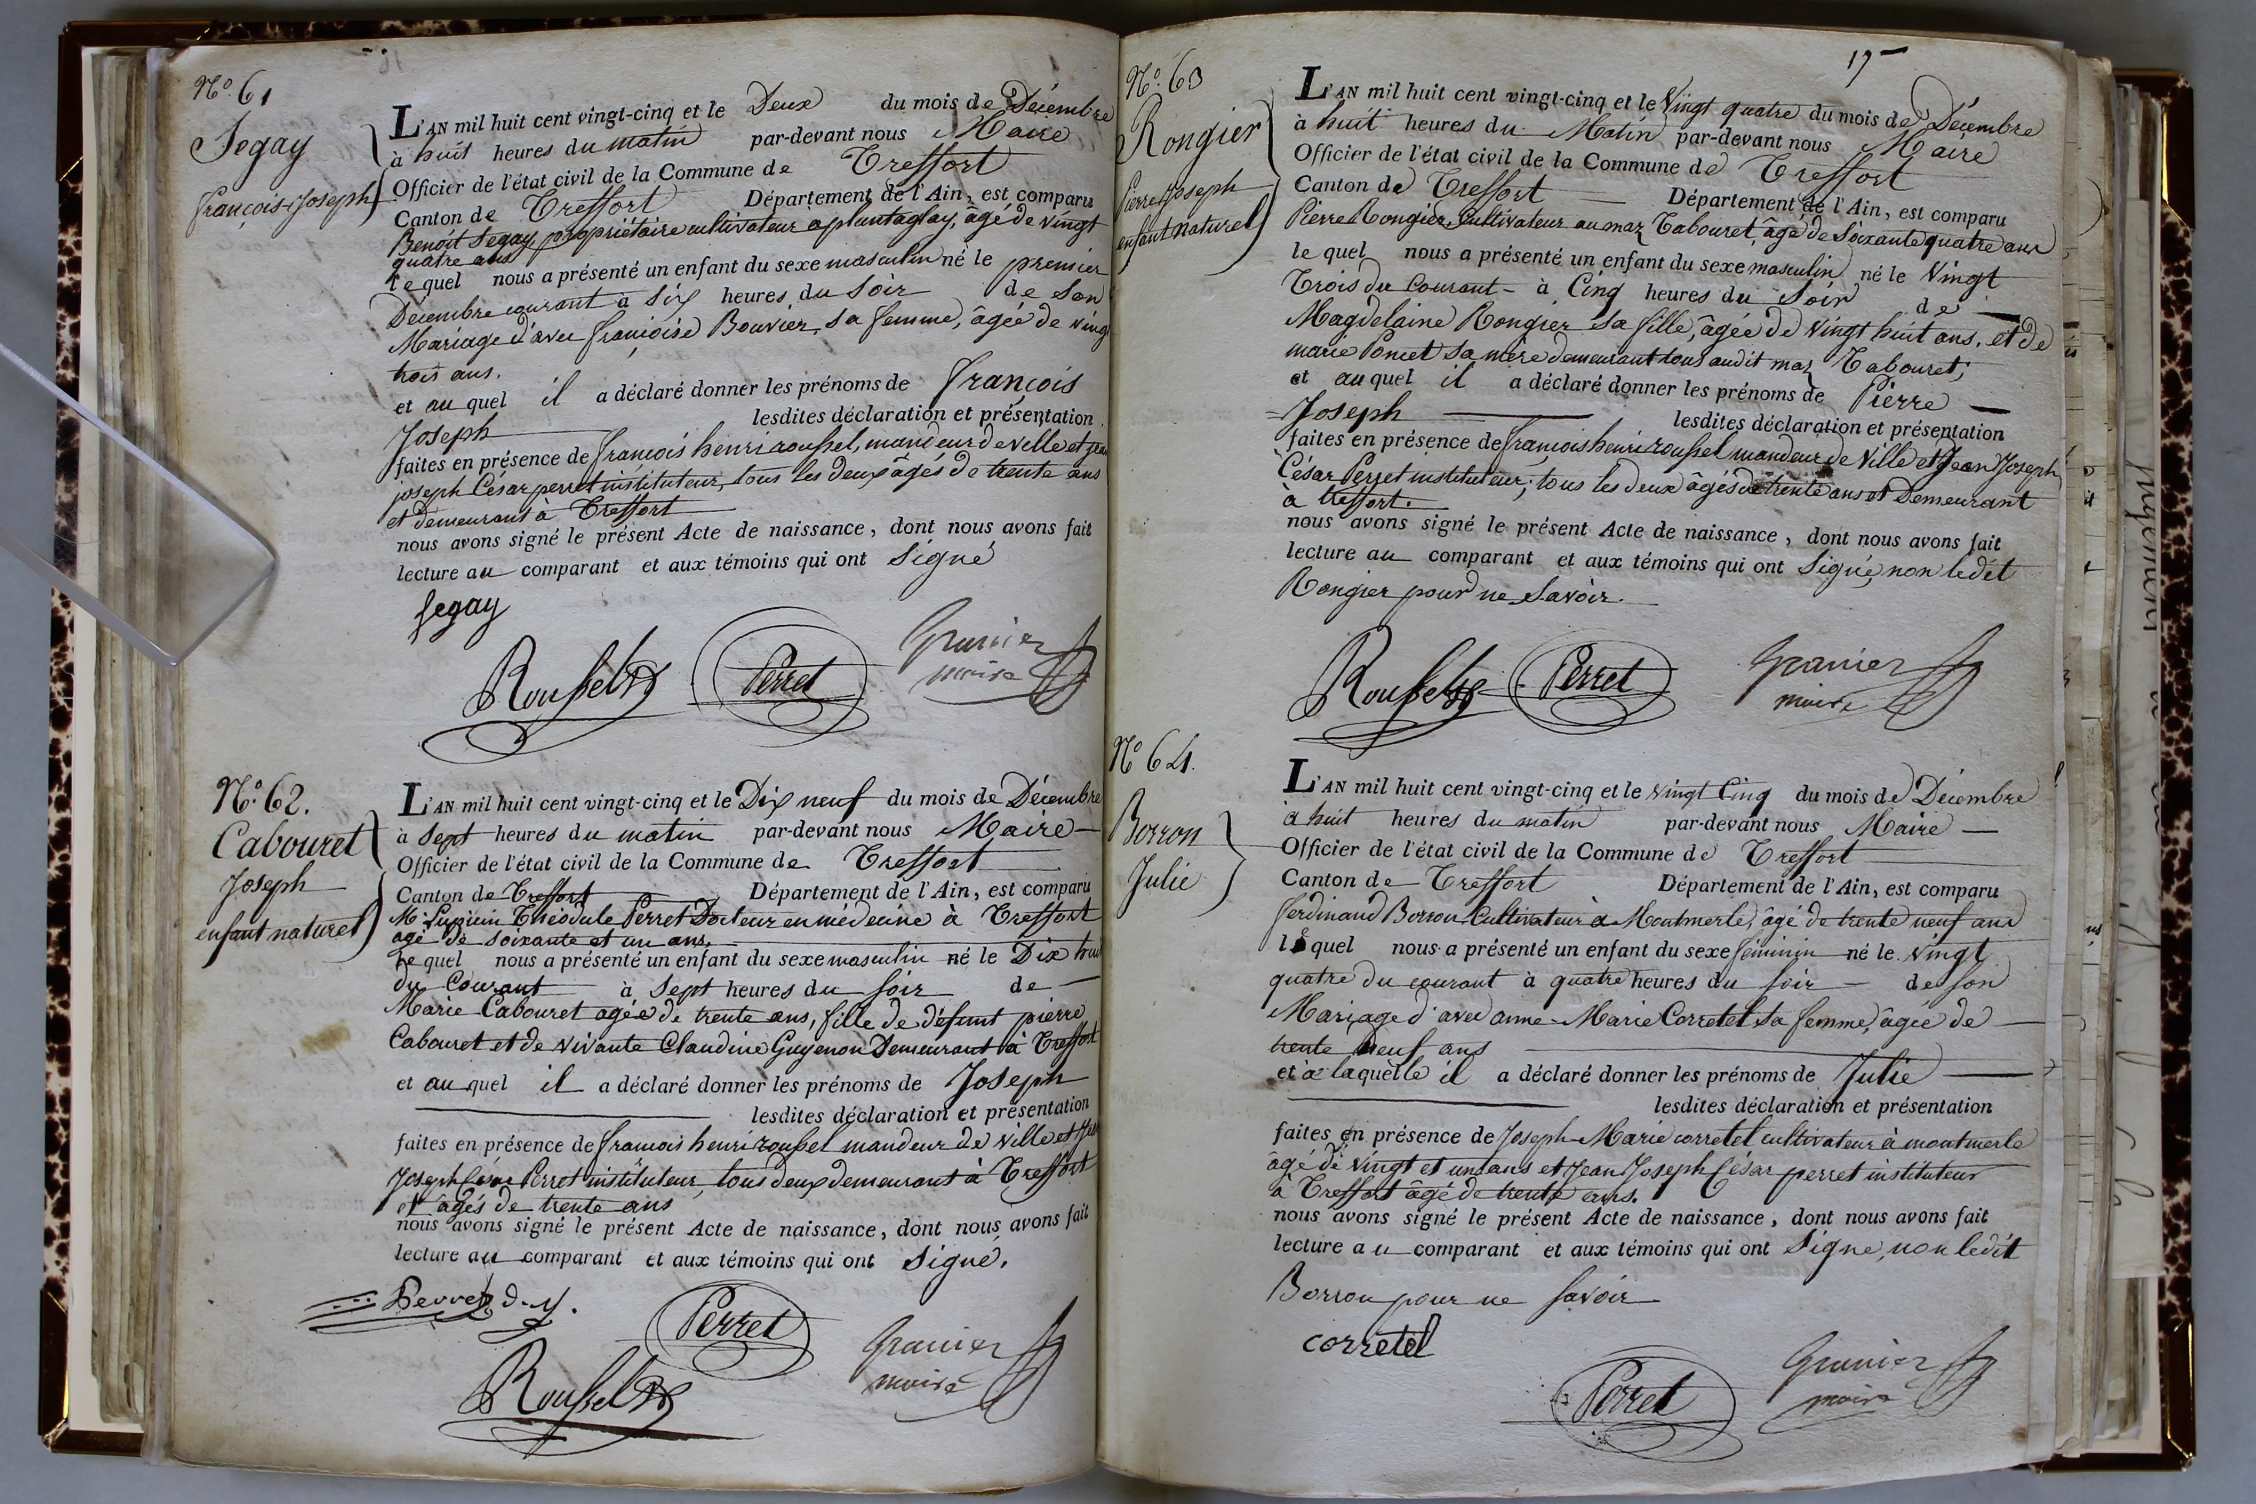 N.º 61
Segay
françois-Joseph
L'AN mil huit cent vingt-cinq et le Deux du mois de Décembre
à huit heures du matin par-devant nous Maire
Officier de l'état civil de la Commune de Treffort
Canton de Treffort Département de l'Ain, est comparu
Benoit Segay propriétaire cultivateur à plantaglay, âgé de vingt
quatre ans
lequel nous a présenté un enfant du sexe masculin né le premier
Décembre courant à six heures du soir de son
Mariage d'avec françoise Bouvier, sa femme, âgée de vingt
trois ans.
et au quel il a déclaré donner les prénoms de françois
Joseph lesdites déclaration et présentation
faites en présence de françois henri roussel, mandeur de ville et jean
joseph César perret instituteur, tous les deux âgés de trente ans
et demeurant à Treffort
nous avons signé le présent Acte de naissance, dont nous avons fait
lecture au comparant et aux témoins qui ont signé
segay
Roussel
Perret
Granier
maire
N.º 62.
Cabouret
Joseph
enfant naturel
L'AN mil huit cent vingt-cinq et le Dix neuf du mois de Décembre
à sept heures du matin par-devant nous Maire
Officier de l'état civil de la Commune de Treffort
Canton de Treffort Département de l'Ain, est comparu
Mr. Théodule Perret Docteur en médecine à Treffort
agé de soixante et un ans.
Le quel nous a présenté un enfant du sexe masculin né le Dix huit
du Courant à sept heures du soir de
Marie Cabouret agée de trente ans, fille de défunt pierre
Cabouret et de vivante Claudine Guyenon Demeurant à Treffort
et au quel il a déclaré donner les prénoms de Joseph
lesdites déclaration et présentation
faites en présence de françois henri roussel mandeur de ville et Jean
Joseph César Perret instituteur, tous deux demeurant à Treffort
et âgés de trente ans
nous avons signé le présent Acte de naissance, dont nous avons fait
lecture au comparant et aux témoins qui ont signé.
Perret d.
Perret
Roussel
Granier
maire
17
N.º 63
Rongier
Pierre Joseph
enfant naturel
L'AN mil huit cent vingt-cinq et le Vingt quatre du mois de Décembre
à huit heures du Matin par-devant nous Maire
Officier de l'état civil de la Commune de Treffort
Canton de Treffort Département de l'Ain, est comparu
Pierre Rongier, Cultivateur au maz Tabouret, âgé de soixante quatre ans
le quel nous a présenté un enfant du sexe masculin né le Vingt
Trois du Courant à Cinq heures du Soir de
Magdelaine Rongier sa fille, âgée de vingt huit ans, et de
marie Poncet sa mère demeurant tous audit maz Tabouret;
et au quel il a déclaré donner les prénoms de Pierre
Joseph lesdites déclaration et présentation
faites en présence de françois henri roussel mandeur de Ville et Jean Joseph
César Perret instituteur; tous les deux âgés de trente ans et Demeurant
à treffort.
nous avons signé le présent Acte de naissance, dont nous avons fait
lecture au comparant et aux témoins qui ont signé, non ledit
Rongier pour ne savoir.
Roussel
Perret
Granier
maire
N.º 64.
Borron
Julie
L'AN mil huit cent vingt-cinq et le vingt Cinq du mois de Décembre
à huit heures du matin par-devant nous Maire
Officier de l'état civil de la Commune de Treffort
Canton de Treffort Département de l'Ain, est comparu
ferdinand Borron Cultivateur à Montmerle, âgé de trente neuf ans
lequel nous a présenté un enfant du sexe féminin né le vingt
quatre du courant à quatre heures du soir de son
Mariage d'avec anne-Marie Corretel sa femme, âgée de
trente neuf ans
et à laquelle il a déclaré donner les prénoms de Julie
lesdites déclaration et présentation
faites en présence de Joseph-Marie corretel cultivateur à montmerle
âgé de vingt et un ans et Jean Joseph César perret instituteur
à Treffort âgé de trente ans.
nous avons signé le présent Acte de naissance, dont nous avons fait
lecture au comparant et aux témoins qui ont signé, non ledit
Borron pour ne savoir
corretel
Perret
Granier
maire